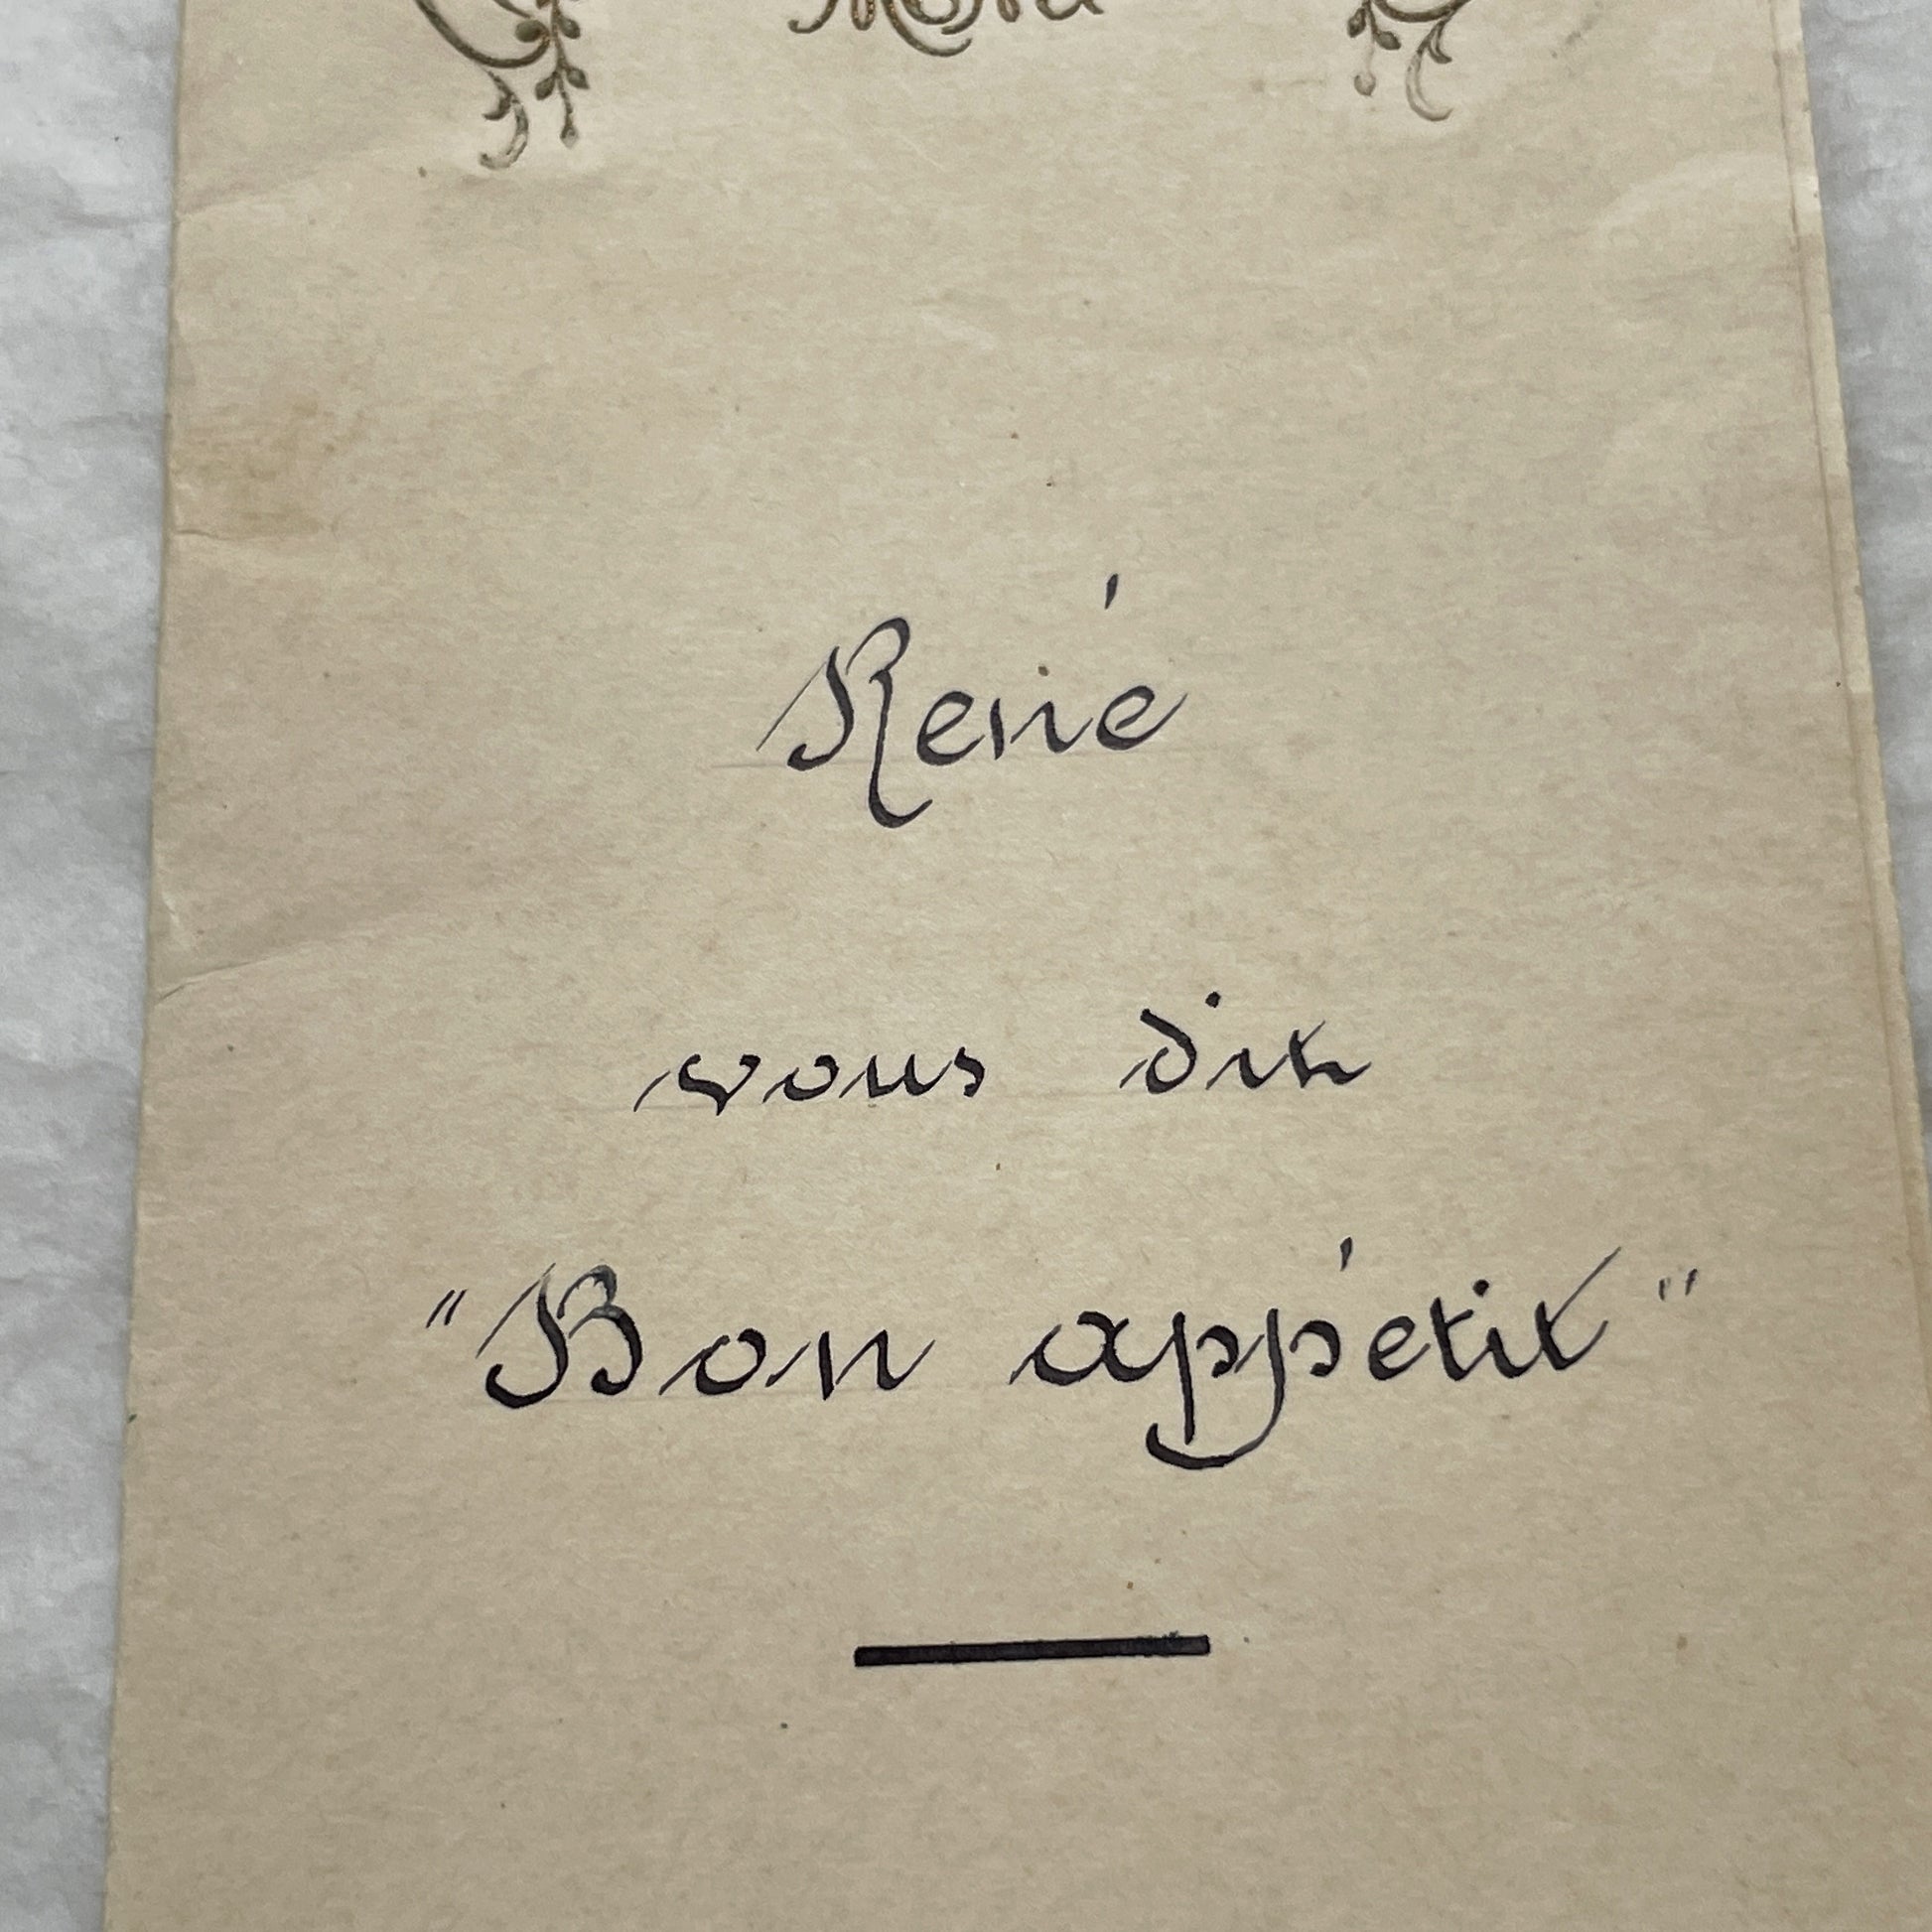 Menu
René
vous dit
"Bon appétit"